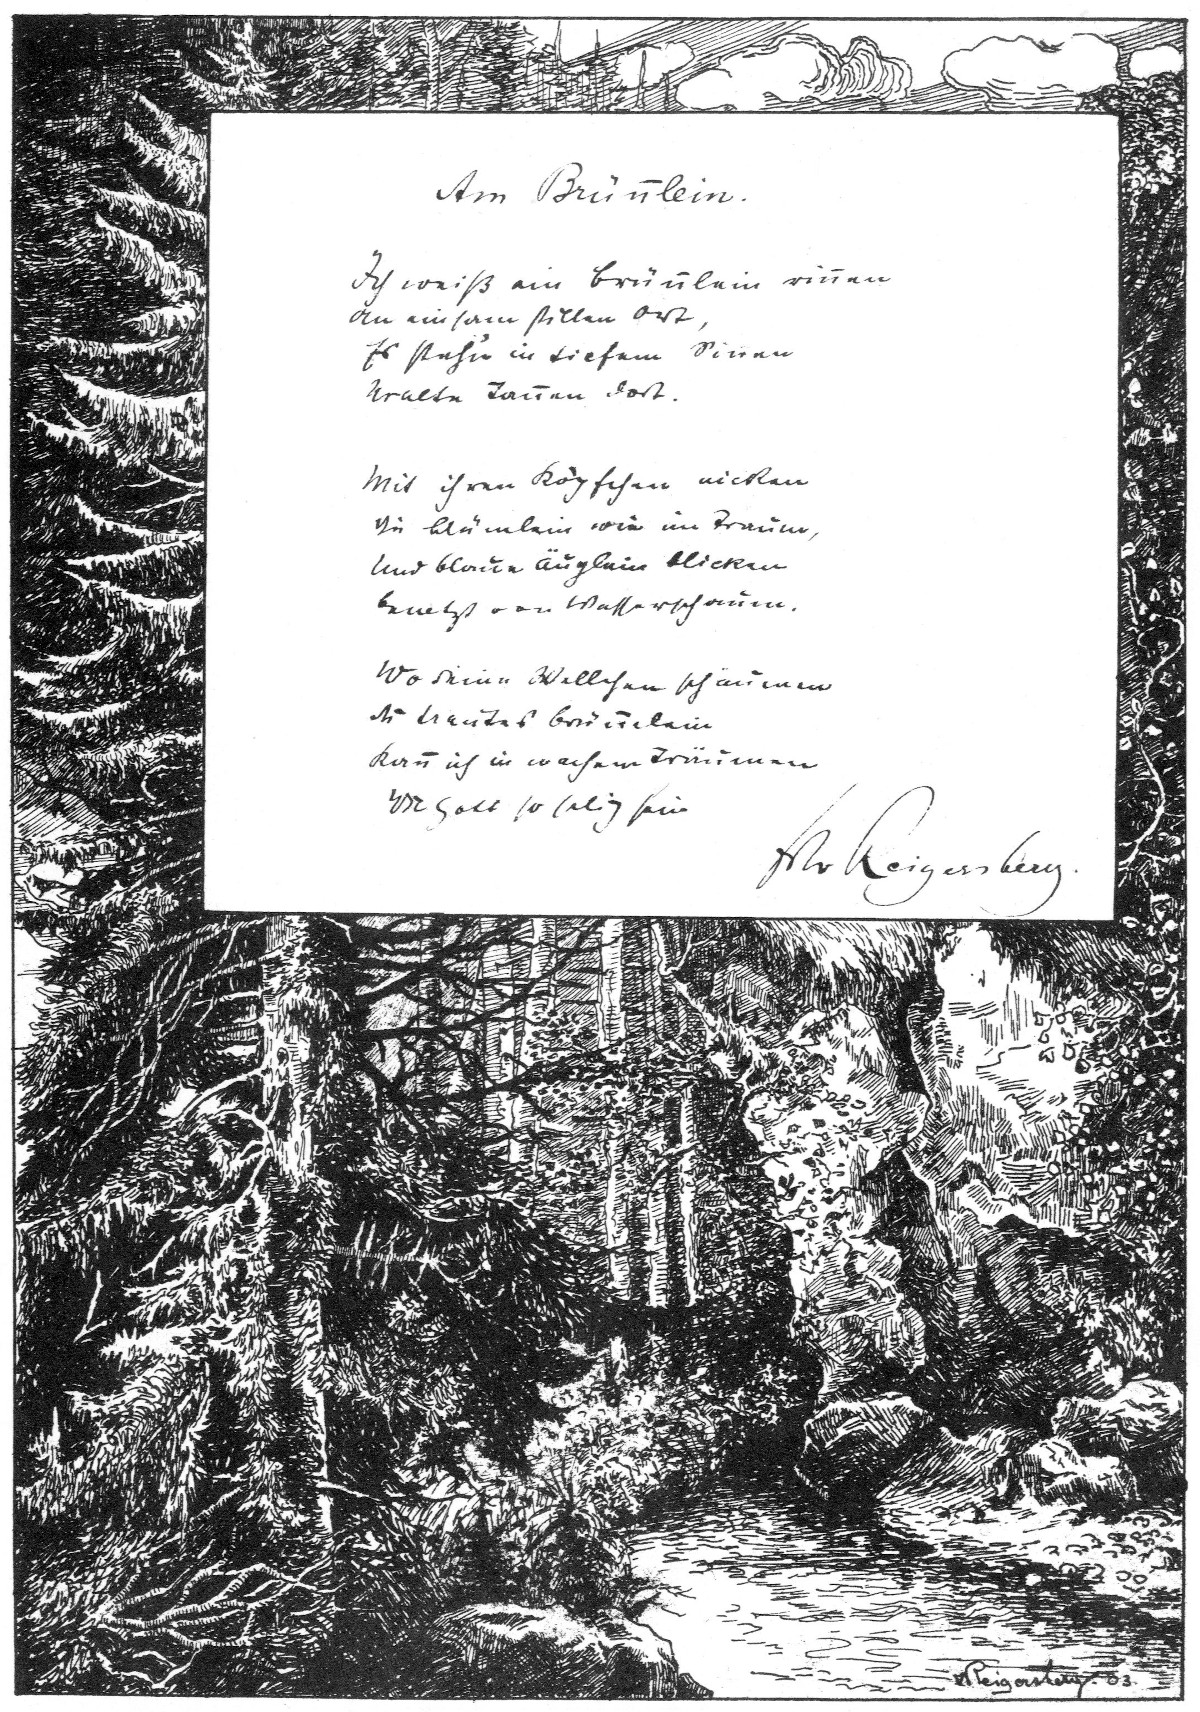 Am Brün̄lein.
Ich weiß ein Brün̄lein rin̄en
An einsam stillen Ort,
Es steh'n in tiefem Sin̄en
Uralte Tan̄en dort.
Mit ihren Köpfchen nicken
Die Blümlein wie im Traum,
Und blaue Äuglein blicken
benetzt von Wasserschaum.
Wo deine Wellchen schäumen
du trautes Brün̄elein
Kan̄ ich in wachem Träumen
Mit Gott so selig sein
Reigersberg.
Reigersberg. 03.